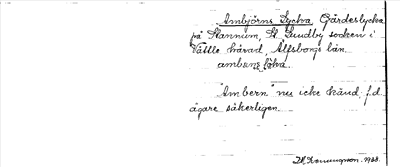 Ambjörns Lycka, Gärdeslycka
på Stannum, St. Lundby socken i
Vättle härad, Älfsborgs län.
ambens löka.
"Ambern" nu icke känd, f.d.
ägare säkerligen.
1933.